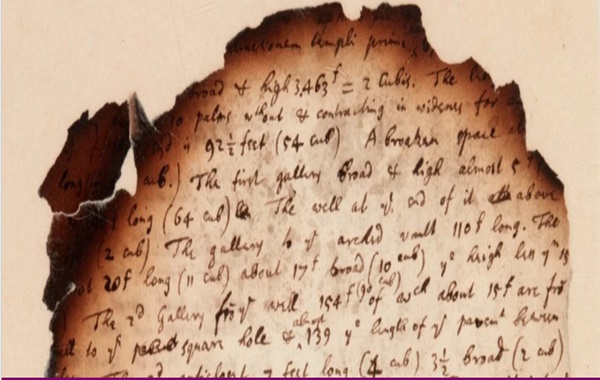 templi primi
broad & high 3,463f = 2 Cubits. The
palms wthout & contracting in widenes for
is 92½ feet (54 cub) A broaken space
long cub.) The first gallery broad & high almost 5f
long (64 cub) The well at ye end of it above
(2 cub) The gallery to ye arched vault 110f long. The
20f long (11 cub) about 17f broad (10 cub) ye heigh less yn 15
The 2d Gallery frō ye well 154f (90 cub) of wch about 15f are frō
to ye square hole & almost 139 ye length of ye pavemt between
7 feet long (4 cub) 3½ broad (2 cub)